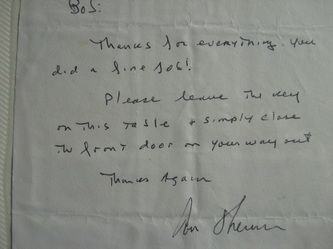 Bob:
Thanks for everything. You
did a fine job!
Please leave the key
on this table & simply close
the front door on your way out
Thanks Again